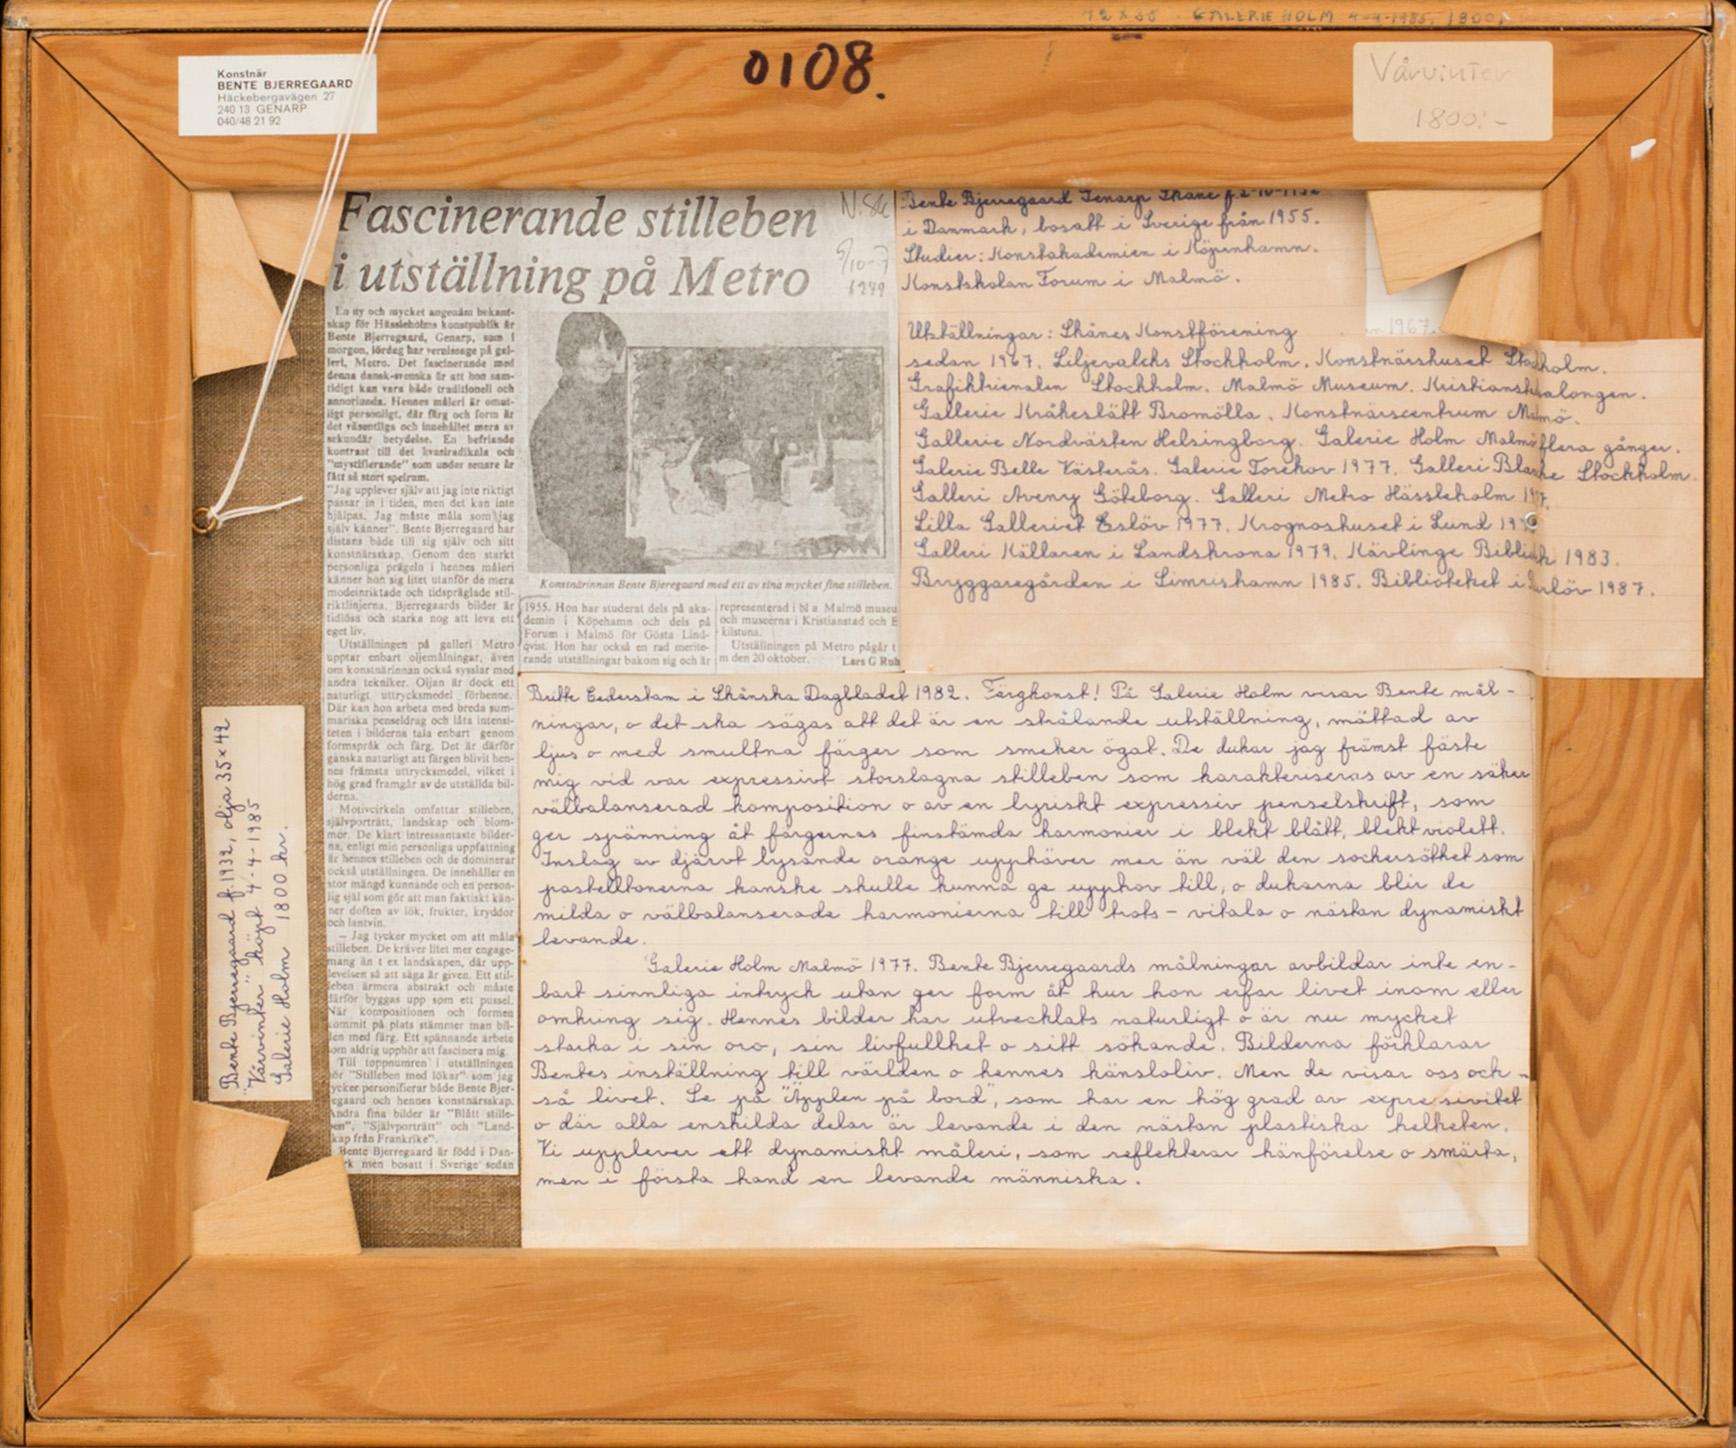 42 x 35 GALERIE HOLM 4-4-1985, 1800,
0108.
Konstnär
BENTE BJERREGAARD
Häckebergavägen 27
240 13 GENARP
040/48 21 92
Vårvinter
1800:-
Fascinerande stilleben
i utställning på Metro
N. Sk
5/10-7
1979
En ny och mycket angenäm bekant-
skap för Hässleholms konstpublik är
Bente Bjerregaard, Genarp, som i
morgon, lördag har vernissage på gal-
leri, Metro. Det fascinerande med
denna dansk-svenska är att hon sam-
tidigt kan vara både traditionell och
annorlunda. Hennes måleri är omut-
ligt personligt, där färg och form är
det väsentliga och innehållet mera av
sekundär betydelse. En befriande
kontrast till det kvasiradikala och
"mystifierande" som under senare år
fått så stort spelrum.
"Jag upplever själv att jag inte riktigt
passar in i tiden, men det kan inte
hjälpas. Jag måste måla som jag
själv känner". Bente Bjerregaard har
distans både till sig själv och sitt
konstnärsskap. Genom den starkt
personliga prägeln i hennes måleri
känner hon sig litet utanför de mera
modeinriktade och tidspräglade stil-
riktlinjerna. Bjerregaards bilder är
tidlösa och starka nog att leva ett
eget liv.
Utställningen på galleri Metro
upptar enbart oljemålningar, även
om konstnärinnan också sysslar med
andra tekniker. Oljan är dock ett
naturligt uttrycksmedel för henne.
Där kan hon arbeta med breda sum-
mariska penseldrag och låta intensi-
teten i bilderna tala enbart genom
formspråk och färg. Det är därför
ganska naturligt att färgen blivit hen-
nes främsta uttrycksmedel, vilket i
hög grad framgår av de utställda bil-
derna.
Motivcirkeln omfattar stilleben,
självporträtt, landskap och blom-
mor. De klart intressantaste bilder-
na, enligt min personliga uppfattning
är hennes stilleben och de dominerar
också utställningen. De innehåller en
stor mängd kunnande och en person-
lig själ som gör att man faktiskt kän-
ner doften av lök, frukter, kryddor
och lantvin.
– Jag tycker mycket om att måla
stilleben. De kräver litet mer engage-
mang än t ex landskapen, där upp-
levelsen så att säga är given. Ett stil-
leben är mera abstrakt och måste
därför byggas upp som ett pussel.
När kompositionen och formen
kommit på plats stämmer man bil-
den med färg. Ett spännande arbete
som aldrig upphör att fascinera mig.
Till toppnumren i utställningen
hör "Stilleben med lökar" som jag
tycker personifierar både Bente Bjer-
regaard och hennes konstnärsskap.
Andra fina bilder är "Blått stille-
ben", "Självporträtt" och "Land-
skap från Frankrike".
Bente Bjerregaard är född i Dan-
rk men bosatt i Sverige sedan
Konstnärinnan Bente Bjeregaard med ett av sina mycket fina stilleben.
1955. Hon har studerat dels på aka-
demin i Köpehamn och dels på
Forum i Malmö för Gösta Lind-
qvist. Hon har också en rad merite-
rande utställningar bakom sig och är
representerad i bl a Malmö museu
och museerna i Kristianstad och E
kilstuna.
Utställningen på Metro pågår t
m den 20 oktober.
Lars G Ruh
Bente Bjerregaard Genarp Skåne f. 2-10-1932
i Danmark, bosatt i Sverige från 1955.
Studier: Konstakademien i Köpenhamn.
Konstskolan Forum i Malmö.
n 1967.
Utställningar: Skånes Konstförening
sedan 1967. Liljevalchs Stockholm. Konstnärshuset Stockholm.
Grafiktrienalen Stockholm. Malmö Museum. Kristianstadsalongen.
Gallerie Kråkeslätt Bromölla. Konstnärscentrum Malmö.
Gallerie Nordvästen Helsingborg. Galerie Holm Malmö flera gånger.
Galerie Belle Västerås. Galerie Torekov 1977. Galleri Blanche Stockholm.
Galleri Aveny Göteborg. Galleri Metro Hässleholm 1977.
Lilla Galleriet Eslöv 1977. Krognoshuset i Lund 19
Galleri Källaren i Landskrona 1979. Kävlinge Bibliotek 1983.
Bryggaregården i Simrishamn 1985. Biblioteket i Burlöv 1987.
Britte Cederstam i Skånska Dagbladet 1982. Färgkonst! På Galerie Holm visar Bente mål-
ningar, o det ska sägas att det är en strålande utställning, mättad av
ljus o med smultna färger som smeker ögat. De dukar jag främst fäste
mig vid var expressivt storslagna stilleben som karakteriseras av en säker
välbalanserad komposition o av en lyriskt expressiv penselskrift, som
ger spänning åt färgernas finstämda harmonier i blekt blått, blekt violett.
Inslag av djärvt lysande orange upphäver mer än väl den sockersöthet som
pastelltonerna kanske skulle kunna ge upphov till, o dukarna blir de
milda o välbalanserade harmonierna till trots – vitala o nästan dynamiskt
levande.
Galerie Holm Malmö 1977. Bente Bjerregaards målningar avbildar inte en-
bart sinnliga intryck utan ger form åt hur hon erfar livet inom eller
omkring sig. Hennes bilder har utvecklats naturligt o är nu mycket
starka i sin oro, sin livfullhet o sitt sökande. Bilderna förklarar
Bentes inställning till världen o hennes känsloliv. Men de visar oss ock-
så livet. Se på "Äpplen på bord", som har en hög grad av expressivitet
o där alla enskilda delar är levande i den nästan plastiska helheten.
Vi upplever ett dynamiskt måleri, som reflekterar hänförelse o smärta,
men i första hand en levande människa.
Bente Bjerregaard f. 1932, olja 35x42
"Vårvinter" köpt 4-4-1985
Galerie Holm 1800 kr.